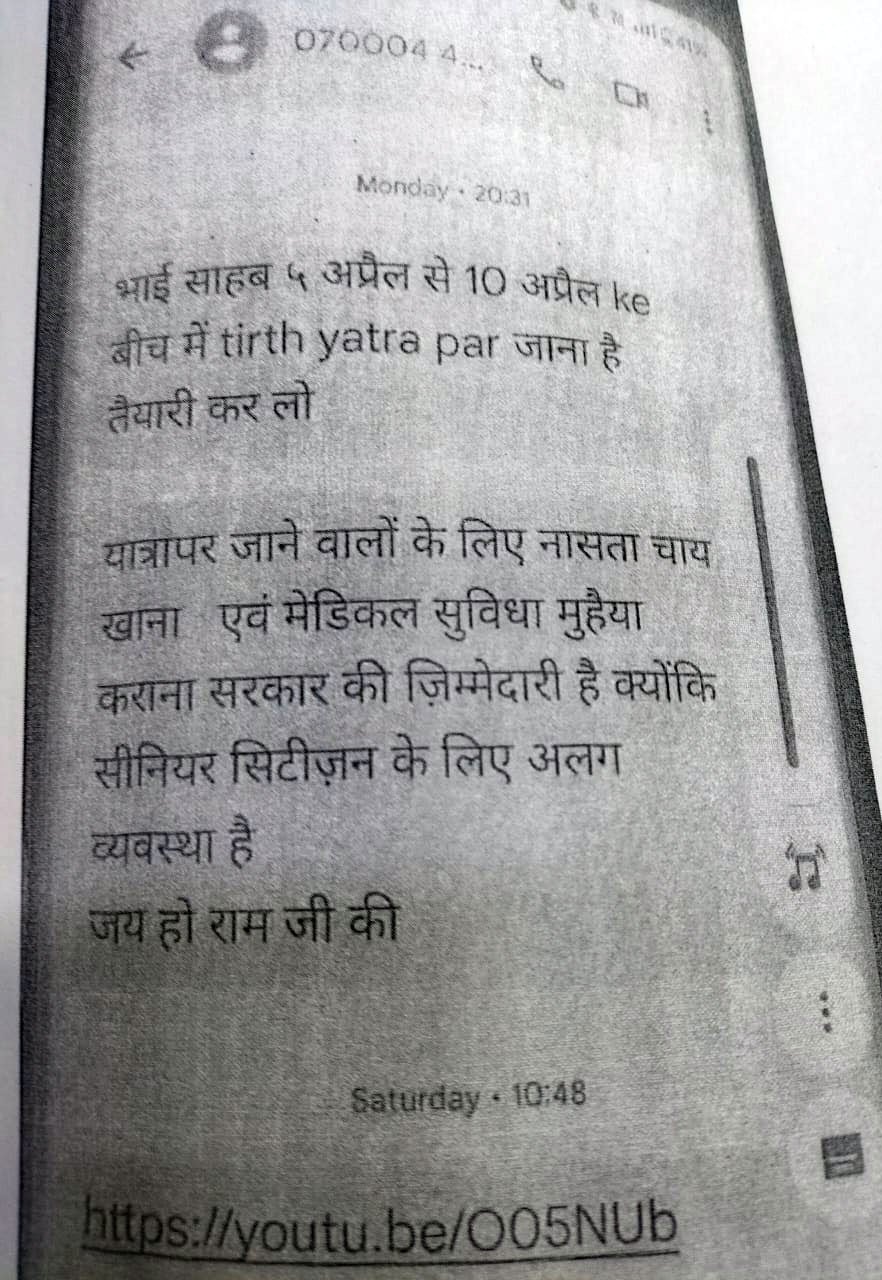 070004 4...
Monday • 20:31
भाई साहब ५ अप्रैल से 10 अप्रैल ke
बीच में tirth yatra par जाना है
तैयारी कर लो
यात्रापर जाने वालों के लिए नासता चाय
खाना एवं मेडिकल सुविधा मुहैया
कराना सरकार की ज़िम्मेदारी है क्योंकि
सीनियर सिटीज़न के लिए अलग
व्यवस्था है
जय हो राम जी की
Saturday • 10:48
https://youtu.be/O05NUb